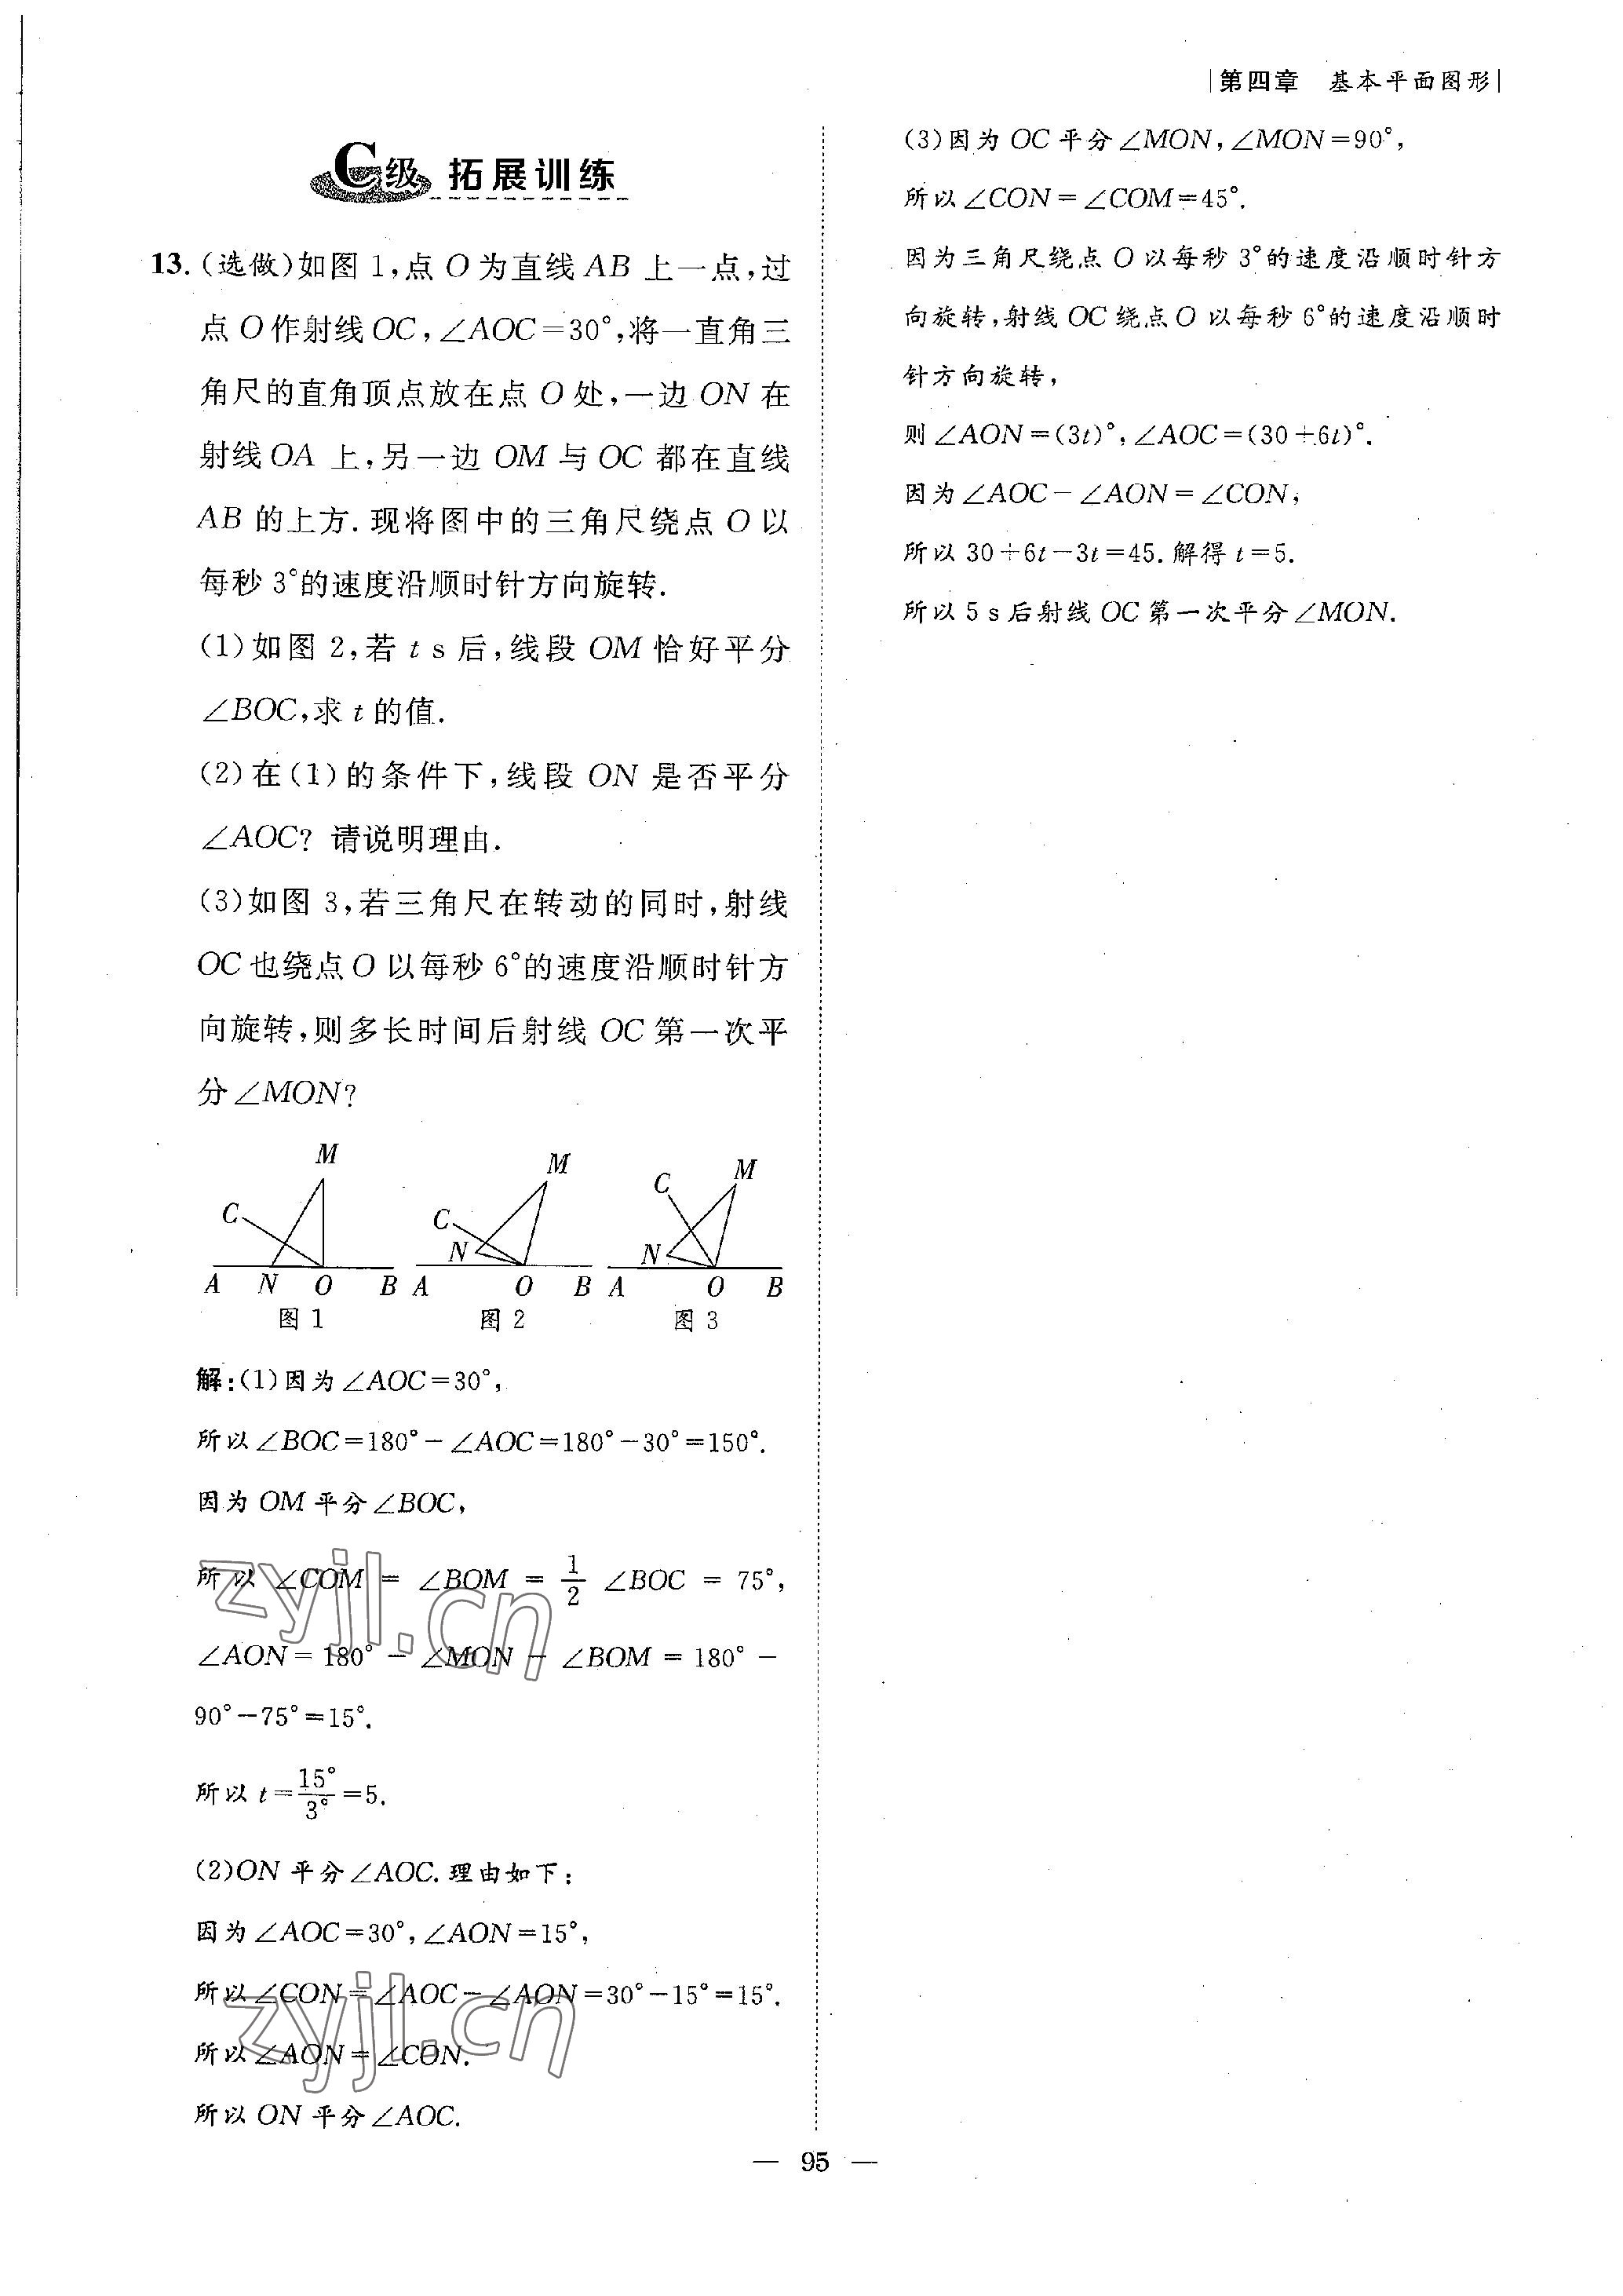 第四章 基本平面图形
C级 拓展训练
13.(选做)如图1,点O为直线AB上一点,过
点O作射线OC,∠AOC=30°,将一直角三
角尺的直角顶点放在点O处,一边ON在
射线OA上,另一边OM与OC都在直线
AB的上方.现将图中的三角尺绕点O以
每秒3°的速度沿顺时针方向旋转.
(1)如图2,若t s后,线段OM恰好平分
∠BOC,求t的值.
(2)在(1)的条件下,线段ON是否平分
∠AOC?请说明理由.
(3)如图3,若三角尺在转动的同时,射线
OC也绕点O以每秒6°的速度沿顺时针方
向旋转,则多长时间后射线OC第一次平
分∠MON?
M
C
A N O B
图1
M
C
N
A O B
图2
C M
N
A O B
图3
解:(1)因为∠AOC=30°,
所以∠BOC=180°-∠AOC=180°-30°=150°.
因为OM平分∠BOC,
所以∠COM=∠BOM=1/2∠BOC=75°,
∠AON=180°-∠MON-∠BOM=180°-
90°-75°=15°.
所以t=15°/3°=5.
(2)ON平分∠AOC.理由如下:
因为∠AOC=30°,∠AON=15°,
所以∠CON=∠AOC-∠AON=30°-15°=15°.
所以∠AON=∠CON.
所以ON平分∠AOC.
(3)因为OC平分∠MON,∠MON=90°,
所以∠CON=∠COM=45°.
因为三角尺绕点O以每秒3°的速度沿顺时针方
向旋转,射线OC绕点O以每秒6°的速度沿顺时
针方向旋转,
则∠AON=(3t)°,∠AOC=(30+6t)°.
因为∠AOC-∠AON=∠CON,
所以30+6t-3t=45.解得t=5.
所以5 s后射线OC第一次平分∠MON.
zyjl.cn
zyjl.cn
— 95 —